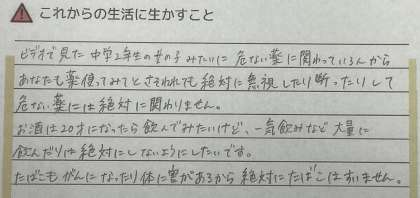 これからの生活に生かすこと
ビデオで見た中学2年生の女の子みたいに危ない薬に関わっている人から
あなたも薬使ってみてとさそわれても絶対に無視したり断ったりして
危ない薬には絶対に関わりません。
お酒は20才になったら飲んでみたいけど、一気飲みなど大量に
飲んだりは絶対にしないようにしたいです。
たばこもがんになったり体に害があるから絶対にたばこはすいません。